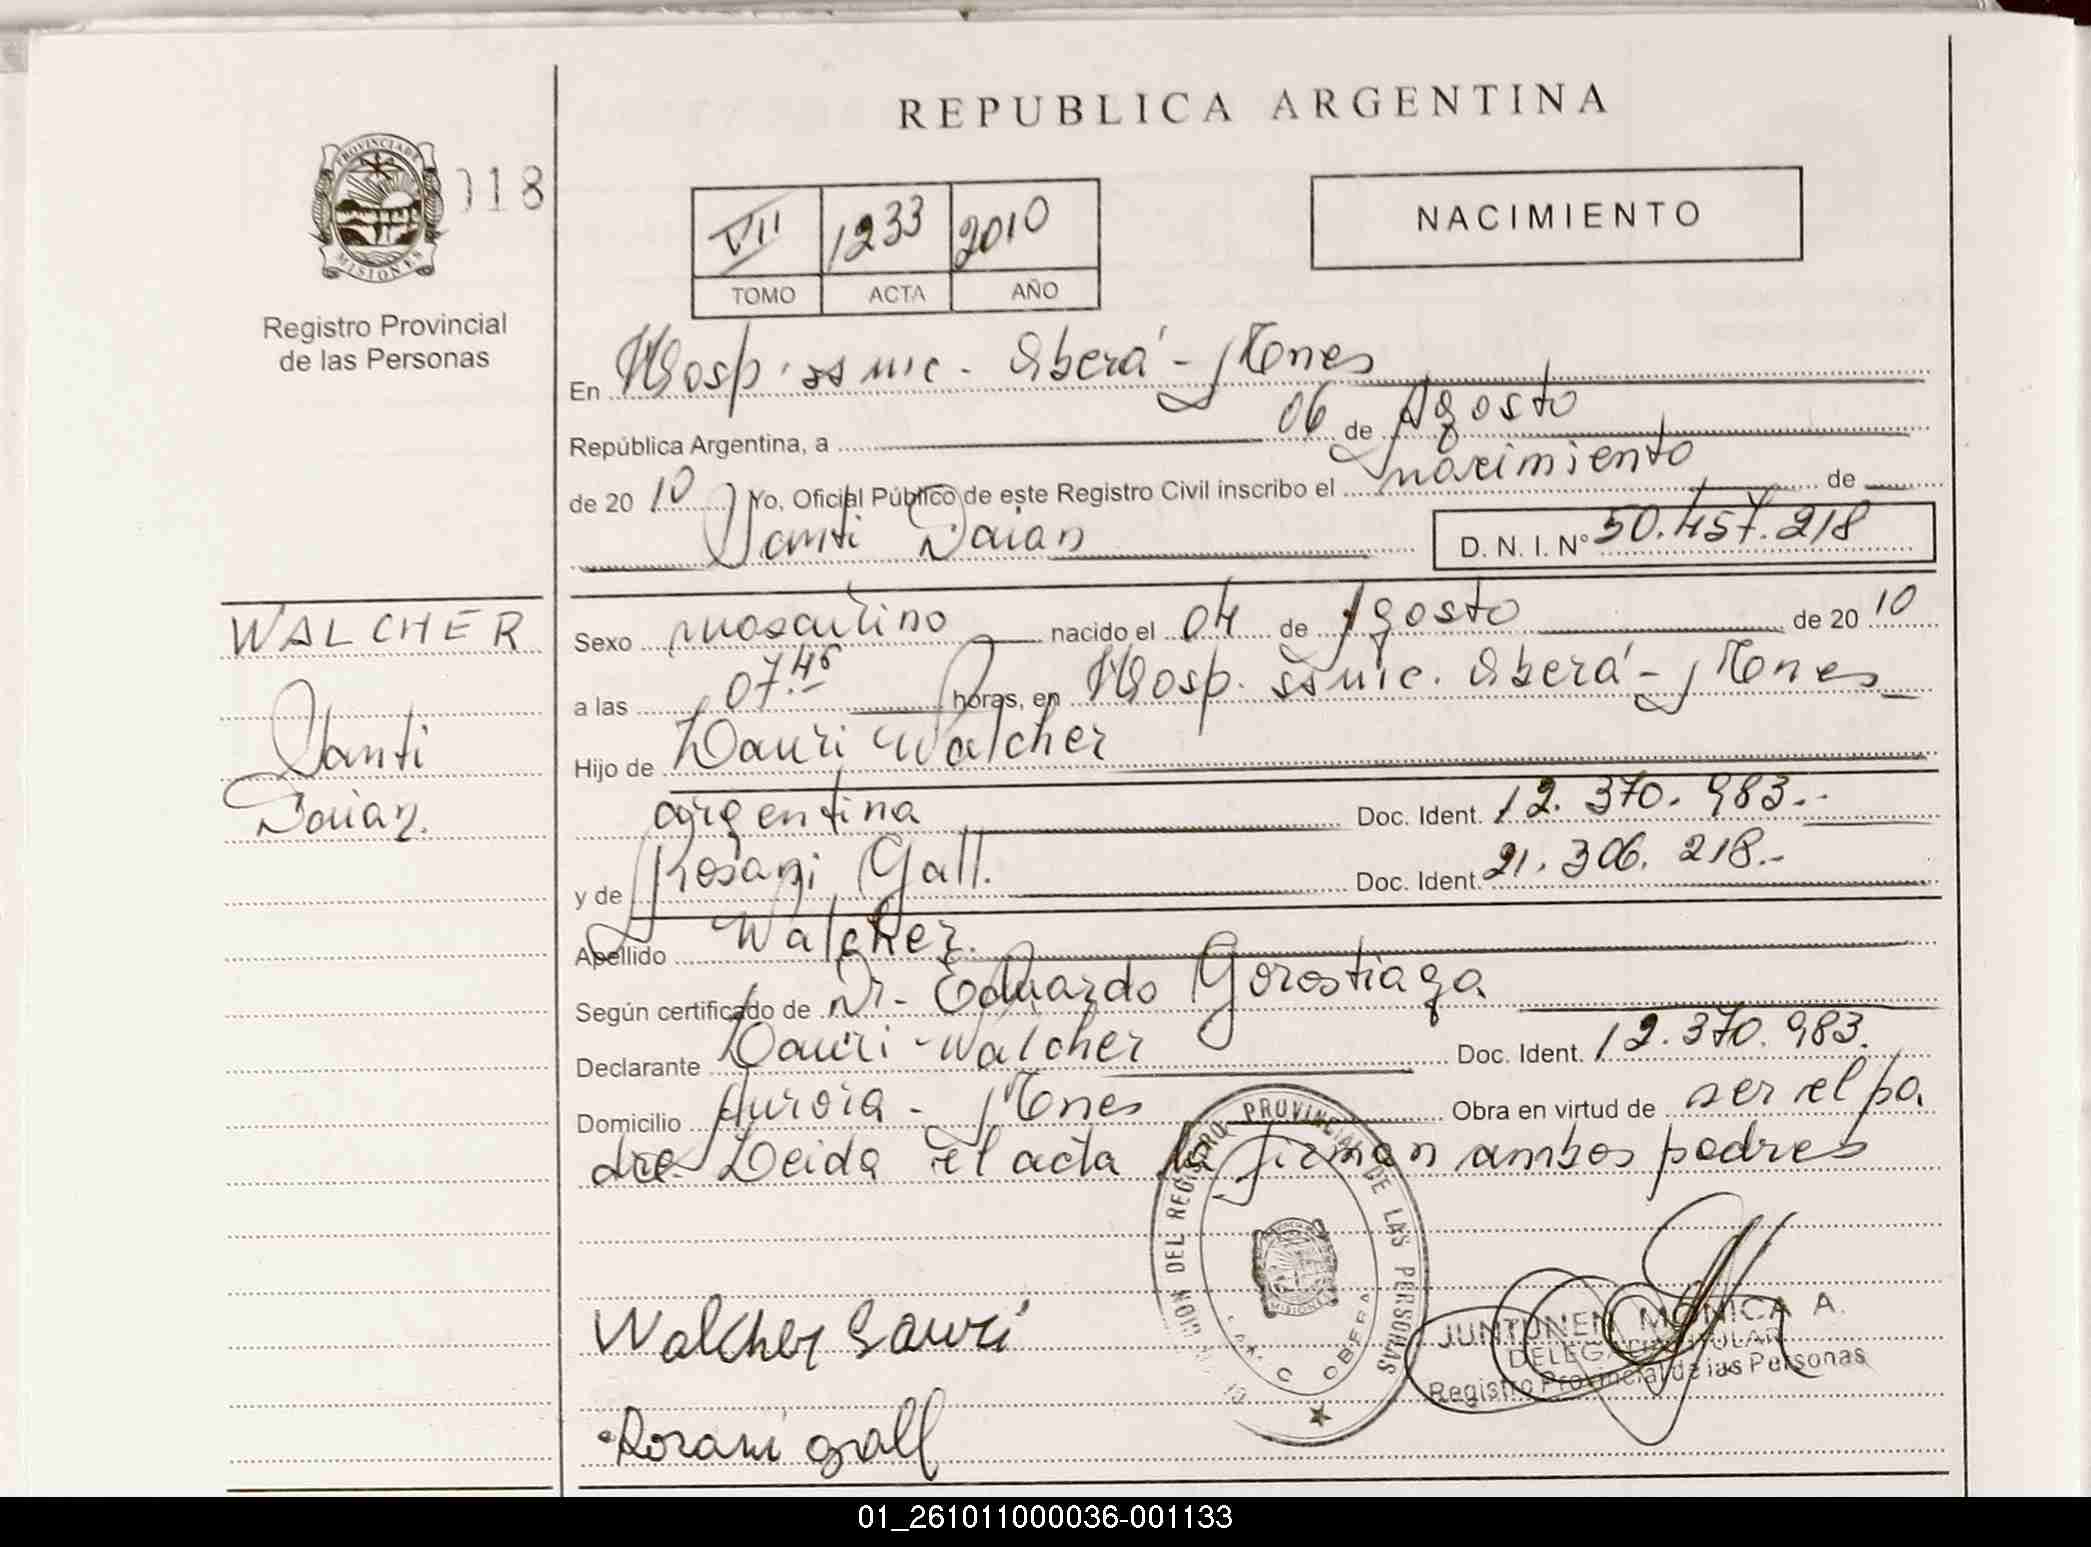 REPUBLICA ARGENTINA
PROVINCIA DE
MISIONES
018
Registro Provincial
de las Personas
VII 1233 2010
TOMO ACTA AÑO
NACIMIENTO
En Hosp. SS Mic. Oberá - Mones
República Argentina, a 06 de Agosto
de 20 10 Yo, Oficial Público de este Registro Civil inscribo el nacimiento de
Santi Daian D. N. I. Nº 50.457.218
WALCHER
Santi
Daian.
Sexo masculino nacido el 04 de Agosto de 20 10
a las 07.45 horas, en Hosp. SS Mic. Oberá - Mones
Hijo de Lauri Walcher
argentina Doc. Ident. 12.370.983.-
y de Rosani Gall. Doc. Ident. 21.306.218.-
Apellido Walcher.
Según certificado de Dr. Eduardo Gorostiaga
Declarante Lauri Walcher Doc. Ident. 12.370.983.
Domicilio Aurora - Mones Obra en virtud de ser el pa
dre. Leida el acta la firman ambos padres
DEL REGISTRO PROVINCIAL DE LAS PERSONAS
MISIONES
OBERA
Walcher Lauri
Rosani Gall
JUNTUNEN MONICA A.
DELEGADA TITULAR
Registro Provincial de las Personas
01_261011000036-001133